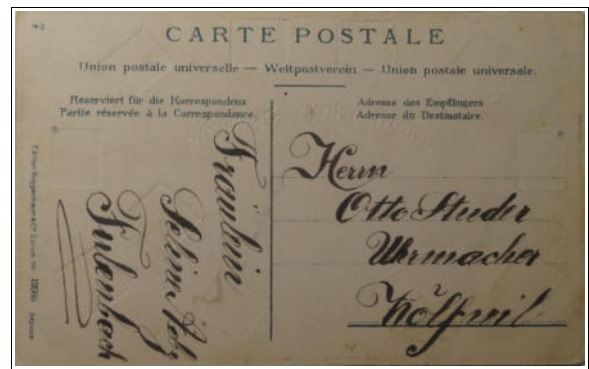 CARTE POSTALE
Union postale universelle — Weltpostverein — Unione postale universale.
Reserviert für die Korrespondenz
Partie réservée à la Correspondance.
Adresse des Empfängers
Adresse du Destinataire.
Fräulein
Selina
Fulenbach
Herrn
Otto Studer
Uhrmacher